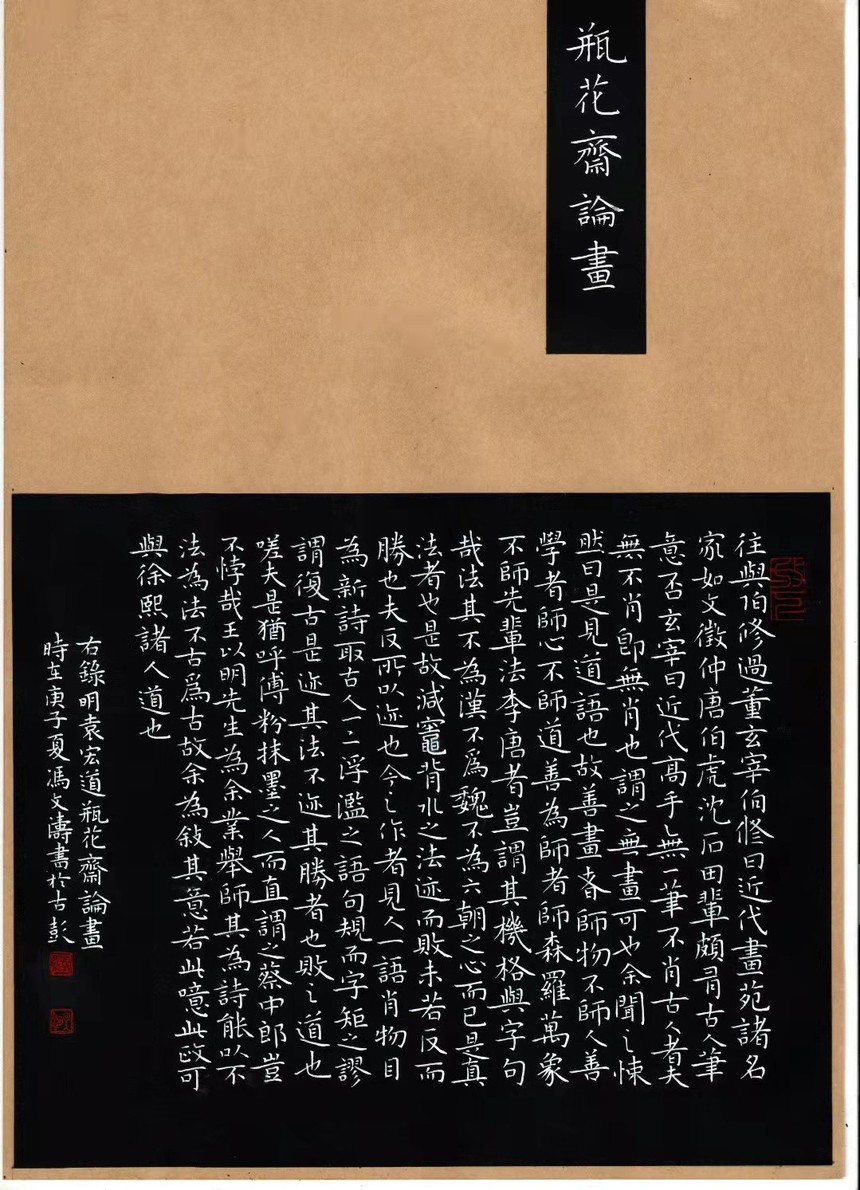 瓶花齋論畫
往與伯修過董玄宰伯修曰近代畫苑諸名
家如文徵仲唐伯虎沈石田輩頗有古人筆
意否玄宰曰近代高手無一筆不肖古人者夫
無不肖即無肖也謂之無畫可也余聞之悚
然曰是見道語也故善畫者師物不師人善
學者師心不師道善為師者師森羅萬象
不師先輩法李唐者豈謂其機格與字句
哉法其不為漢不為魏不為六朝之心而已是真
法者也是故減竈背水之法迹而敗未若反而
勝也夫反所以迹也今之作者見人一語肖物目
為新詩取古人一二浮濫之語句規而字矩之謬
謂復古是迹其法不迹其勝者也敗之道也
嗟夫是猶呼傅粉抹墨之人而直謂之蔡中郎豈
不悖哉王以明先生為余業舉師其為詩能以不
法為法不古為古故余為敍其意若此噫此政可
與徐熙諸人道也
右錄明袁宏道瓶花齋論畫
時在庚子夏馮文濤書於古彭